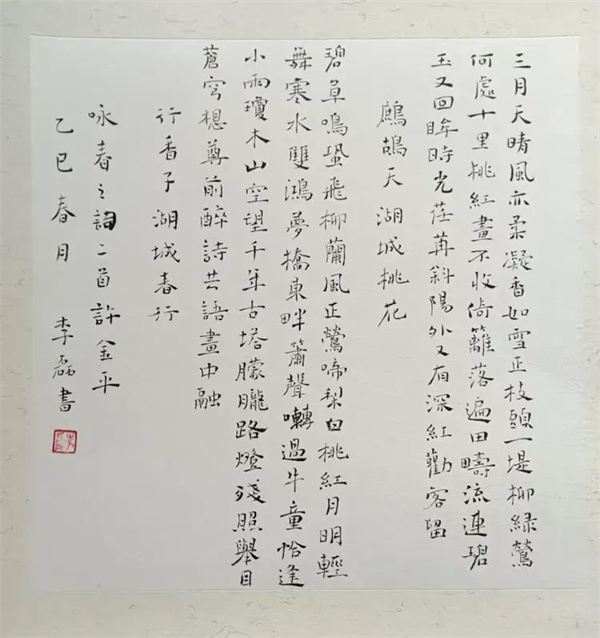 三月天晴風亦柔凝香如雪正枝頭一堤柳綠鶯
何處十里桃紅畫不收倚籬落遍田疇流連碧
玉又回眸時光荏苒斜陽外又有深紅勸客留
鷓鴣天湖城桃花
碧草鳴蛩飛柳蘭風正鶯啼梨白桃紅月明輕
舞寒水雙鴻夢橋東畔簫聲囀過牛童恰逢
小雨瓊木山空望千年古塔朦朧路燈殘照舉目
蒼穹想尊前醉詩共語畫中融
行香子湖城春行
咏春之詞二首許金平
乙巳春月 李磊書